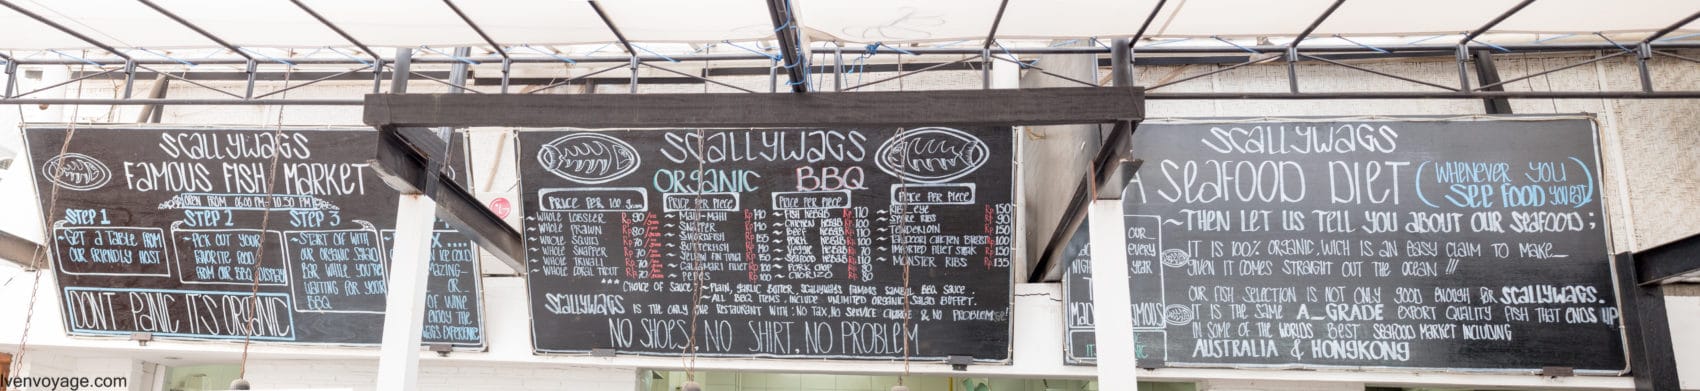 SCALLYWAGS
FAMOUS FISH MARKET
OPEN FROM 06.00 PM - 10.30 PM
STEP 1
GET A TABLE FROM
OUR FRIENDLY HOST
STEP 2
PICK OUT YOUR
FAVORITE FOOD
FROM OUR BBQ DISPLAY
STEP 3
START OFF WITH
OUR ORGANIC SALAD
BAR WHILE YOU'RE
WAITING FOR YOUR
BBQ
DON'T PANIC IT'S ORGANIC
SCALLYWAGS
ORGANIC BBQ
PRICE PER 100 gram
~ WHOLE LOBSTER Rp 90
~ WHOLE PRAWN Rp 80
~ WHOLE SQUID Rp 70
~ WHOLE SNAPPER Rp 70
~ WHOLE TREVALLI Rp 70
~ WHOLE CORAL TROUT Rp 70
PRICE PER PIECE
~ MAHI-MAHI
~ SNAPPER
~ SWORDFISH
~ BUTTERFISH
~ YELLOW FIN TUNA
~ CALAMARI FILLET
PRICE PER PIECE
~ FISH KEBAB Rp 110
~ CHICKEN KEBAB Rp 100
~ BEEF KEBAB
~ PORK KEBAB
~ VEGGIE KEBAB
~ PORK CHOP
~ CHORIZO
PRICE PER PIECE
~ RIB_EYE Rp 150
~ SPARE RIBS Rp 90
~ TENDERLOIN Rp 150
~ TANDOORI CHICKEN BREAST Rp 100
~ IMPORTED FILLET STEAK Rp 150
~ MONSTER RIBS Rp 135
*** CHOICE OF SAUCE: ~ PLAIN, GARLIC BUTTER, SCALLYWAGS FAMOUS SAMBAL, BBQ SAUCE.
~ ALL BBQ ITEMS, INCLUDE UNLIMITED ORGANIC SALAD BUFFET.
SCALLYWAGS IS THE ONLY ONE RESTAURANT WITH: NO TAX, NO SERVICE CHARGE & NO PROBLEM
NO SHOES, NO SHIRT, NO PROBLEM
SCALLYWAGS
A SEAFOOD DIET (WHENEVER YOU
SEE FOOD YOU EAT)
~ THEN LET US TELL YOU ABOUT OUR SEAFOOD;
IT IS 100% ORGANIC, WICH IS AN EASY CLAIM TO MAKE_
GIVEN IT COMES STRAIGHT OUT THE OCEAN !!!
OUR FISH SELECTION IS NOT ONLY GOOD ENOUGH FOR SCALLYWAGS.
IT IS THE SAME A_GRADE EXPORT QUALITY FISH THAT ENDS UP
IN SOME OF THE WORLDS BEST SEAFOOD MARKET INCLUDING
AUSTRALIA & HONGKONG
lvenvoyage.com